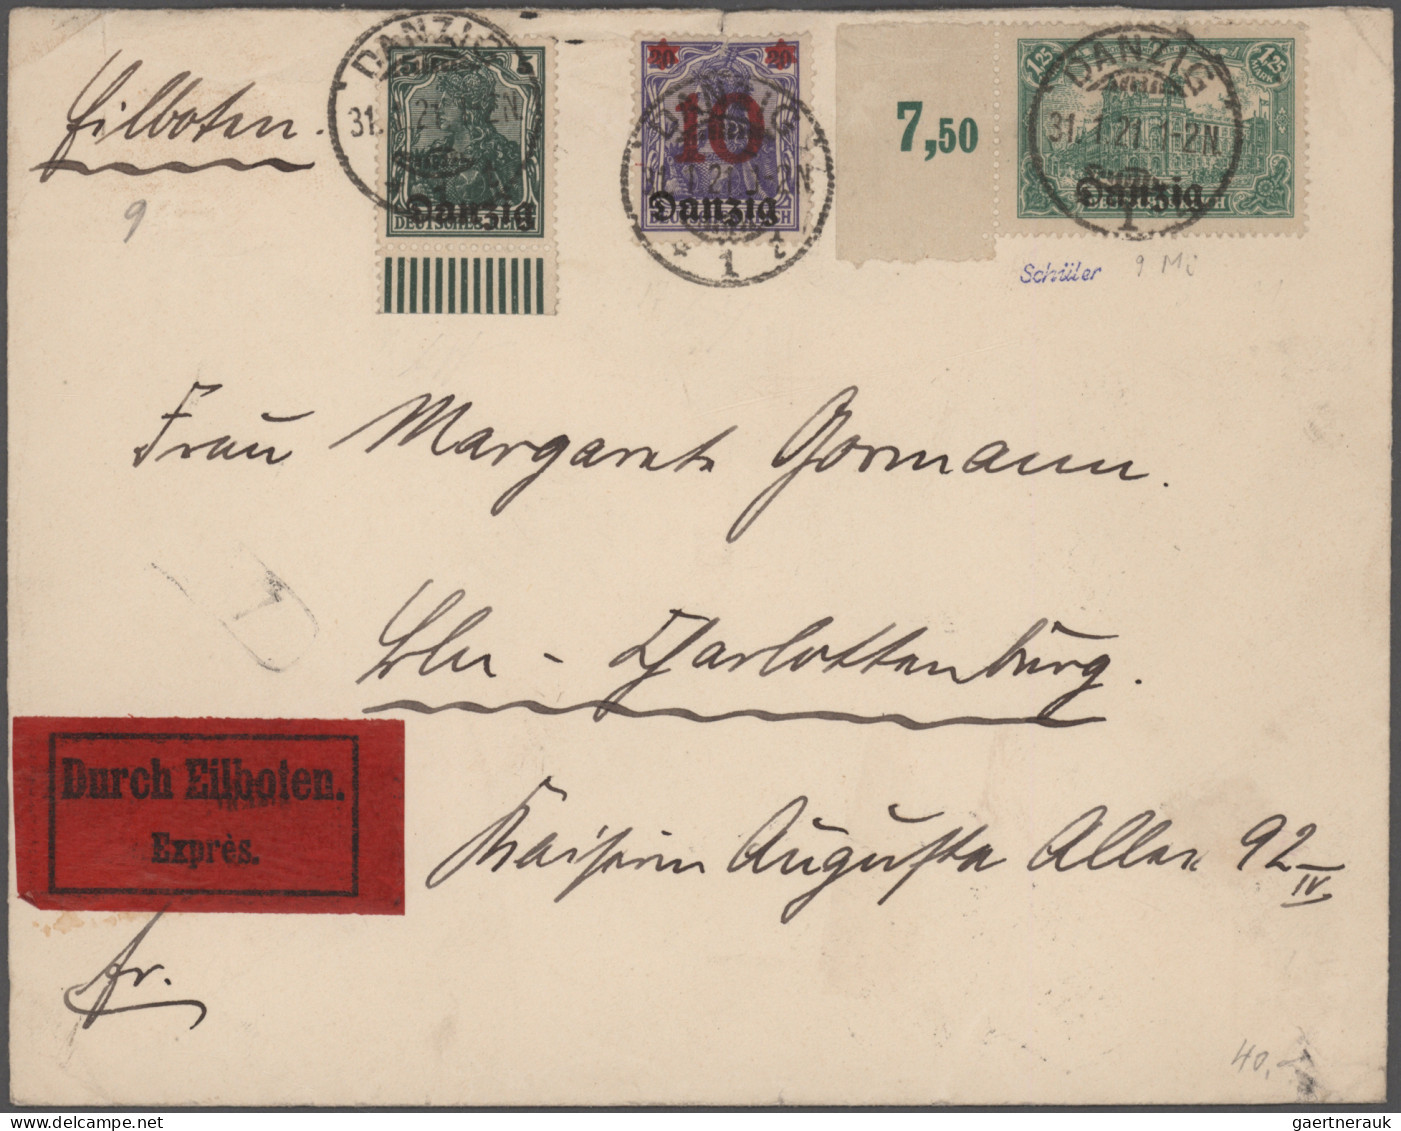 Eilboten.
9
DANZIG
31. 1. 21. 1-2N.
5
Danzig
DEUTSCHES REICH
20 20
10
DANZIG
Danzig
1
7,50
1,25 MARK 1,25 MARK
DANZIG
31. 1. 21. 1-2N.
Danzig
1
Schüler 9 Mi
Frau Margarete Gormann.
Charlottenburg.
Durch Eilboten.
Exprès.
Kaiserin Augusta Allee 92 IV.
fr.
40,-
gaertnerauk